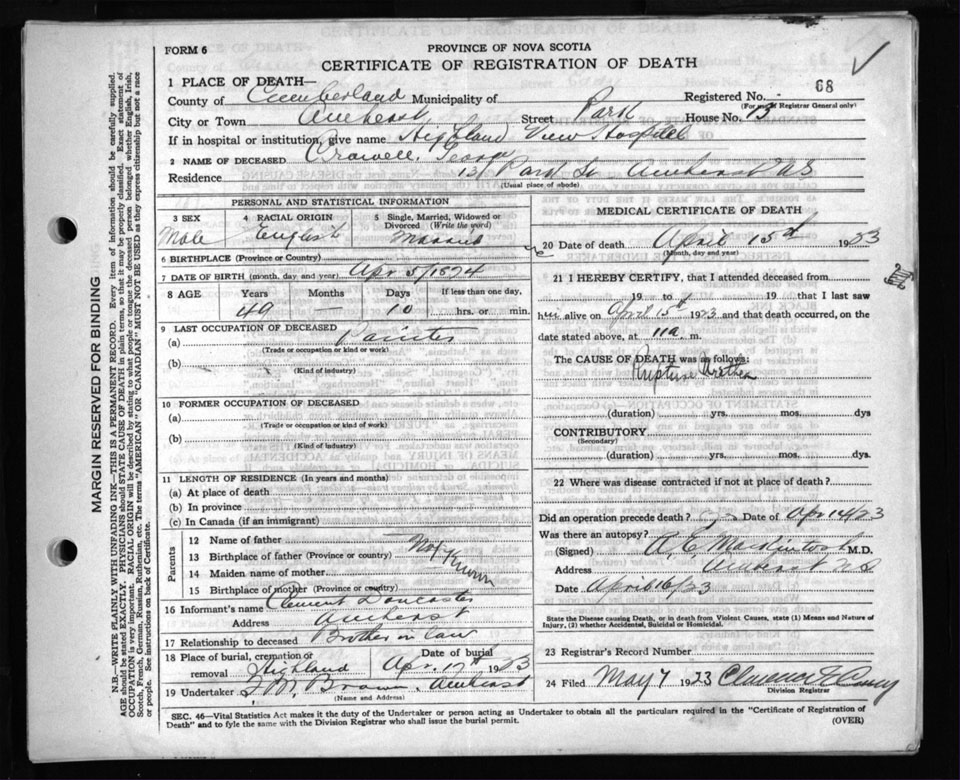 FORM 6
PROVINCE OF NOVA SCOTIA
CERTIFICATE OF REGISTRATION OF DEATH
1 PLACE OF DEATH—
68
County of Cumberland Municipality of
Registered No.
(For use of Registrar General only)
City or Town Amherst Street Park House No. 13
If in hospital or institution, give name Highland View Hospital
2 NAME OF DECEASED Crowell, George
Residence 13 Park St Amherst NS
(Usual place of abode)
PERSONAL AND STATISTICAL INFORMATION
3 SEX
Male
4 RACIAL ORIGIN
English
5 Single, Married, Widowed or Divorced (Write the word)
Married
6 BIRTHPLACE (Province or Country)
7 DATE OF BIRTH (month, day and year) Apr 5/1874
8 AGE Years Months Days If less than one day,
49 — 10 hrs. or min.
9 LAST OCCUPATION OF DECEASED
(a) Painter
(Trade or occupation or kind or work)
(b)
(Kind of industry)
10 FORMER OCCUPATION OF DECEASED
(a)
(Trade or occupation or kind or work)
(b)
(Kind of industry)
11 LENGTH OF RESIDENCE (In years and months)
(a) At place of death
(b) In province
(c) In Canada (if an immigrant)
Parents
12 Name of father
13 Birthplace of father (Province or country)
Not Known
14 Maiden name of mother
15 Birthplace of mother (Province or country)
16 Informant's name Clement Doncaster
Address Amherst
17 Relationship to deceased Brother in law
18 Place of burial, cremation or removal Highland
Date of burial Apr. 17th 1923
19 Undertaker Brown, Amherst
(Name and Address)
MEDICAL CERTIFICATE OF DEATH
20 Date of death April 15th 1923
(Month, day and year)
21 I HEREBY CERTIFY, that I attended deceased from
19 to 19 that I last saw
him alive on April 15th 1923 and that death occurred, on the
date stated above, at 11 a. m.
The CAUSE OF DEATH was as follows:
Rupture Urethra
(duration) yrs. mos. dys
CONTRIBUTORY
(Secondary)
(duration) yrs. mos. dys
22 Where was disease contracted if not at place of death?
Did an operation precede death? Date of Apr 14/23
Was there an autopsy?
(Signed) A. E. Mackintosh M.D.
Address Amherst NS
Date April 16/23
State the Disease causing Death, or in death from Violent Causes, state (1) Means and Nature of Injury, (2) whether Accidental, Suicidal or Homicidal.
23 Registrar's Record Number
24 Filed May 7 1923 Clarence
Division Registrar
SEC. 46—Vital Statistics Act makes it the duty of the Undertaker or person acting as Undertaker to obtain all the particulars required in the "Certificate of Registration of
Death" and to fyle the same with the Division Registrar who shall issue the burial permit.
(OVER)
MARGIN RESERVED FOR BINDING
N.B.—WRITE PLAINLY WITH UNFADING INK—THIS IS A PERMANENT RECORD. Every item of information should be carefully supplied.
AGE should be stated EXACTLY. PHYSICIANS should STATE CAUSE OF DEATH in plain terms, so that it may be properly classified. Exact statement of
OCCUPATION is very important. RACIAL ORIGIN will be described by stating to what people or tongue the deceased person belonged whether English, Irish,
Scotch, French, German, Russian, Ruthenian, etc. The terms "AMERICAN" OR "CANADIAN" MUST NOT BE USED as they express citizenship but not a race
or people. See instructions on back of Certificate.